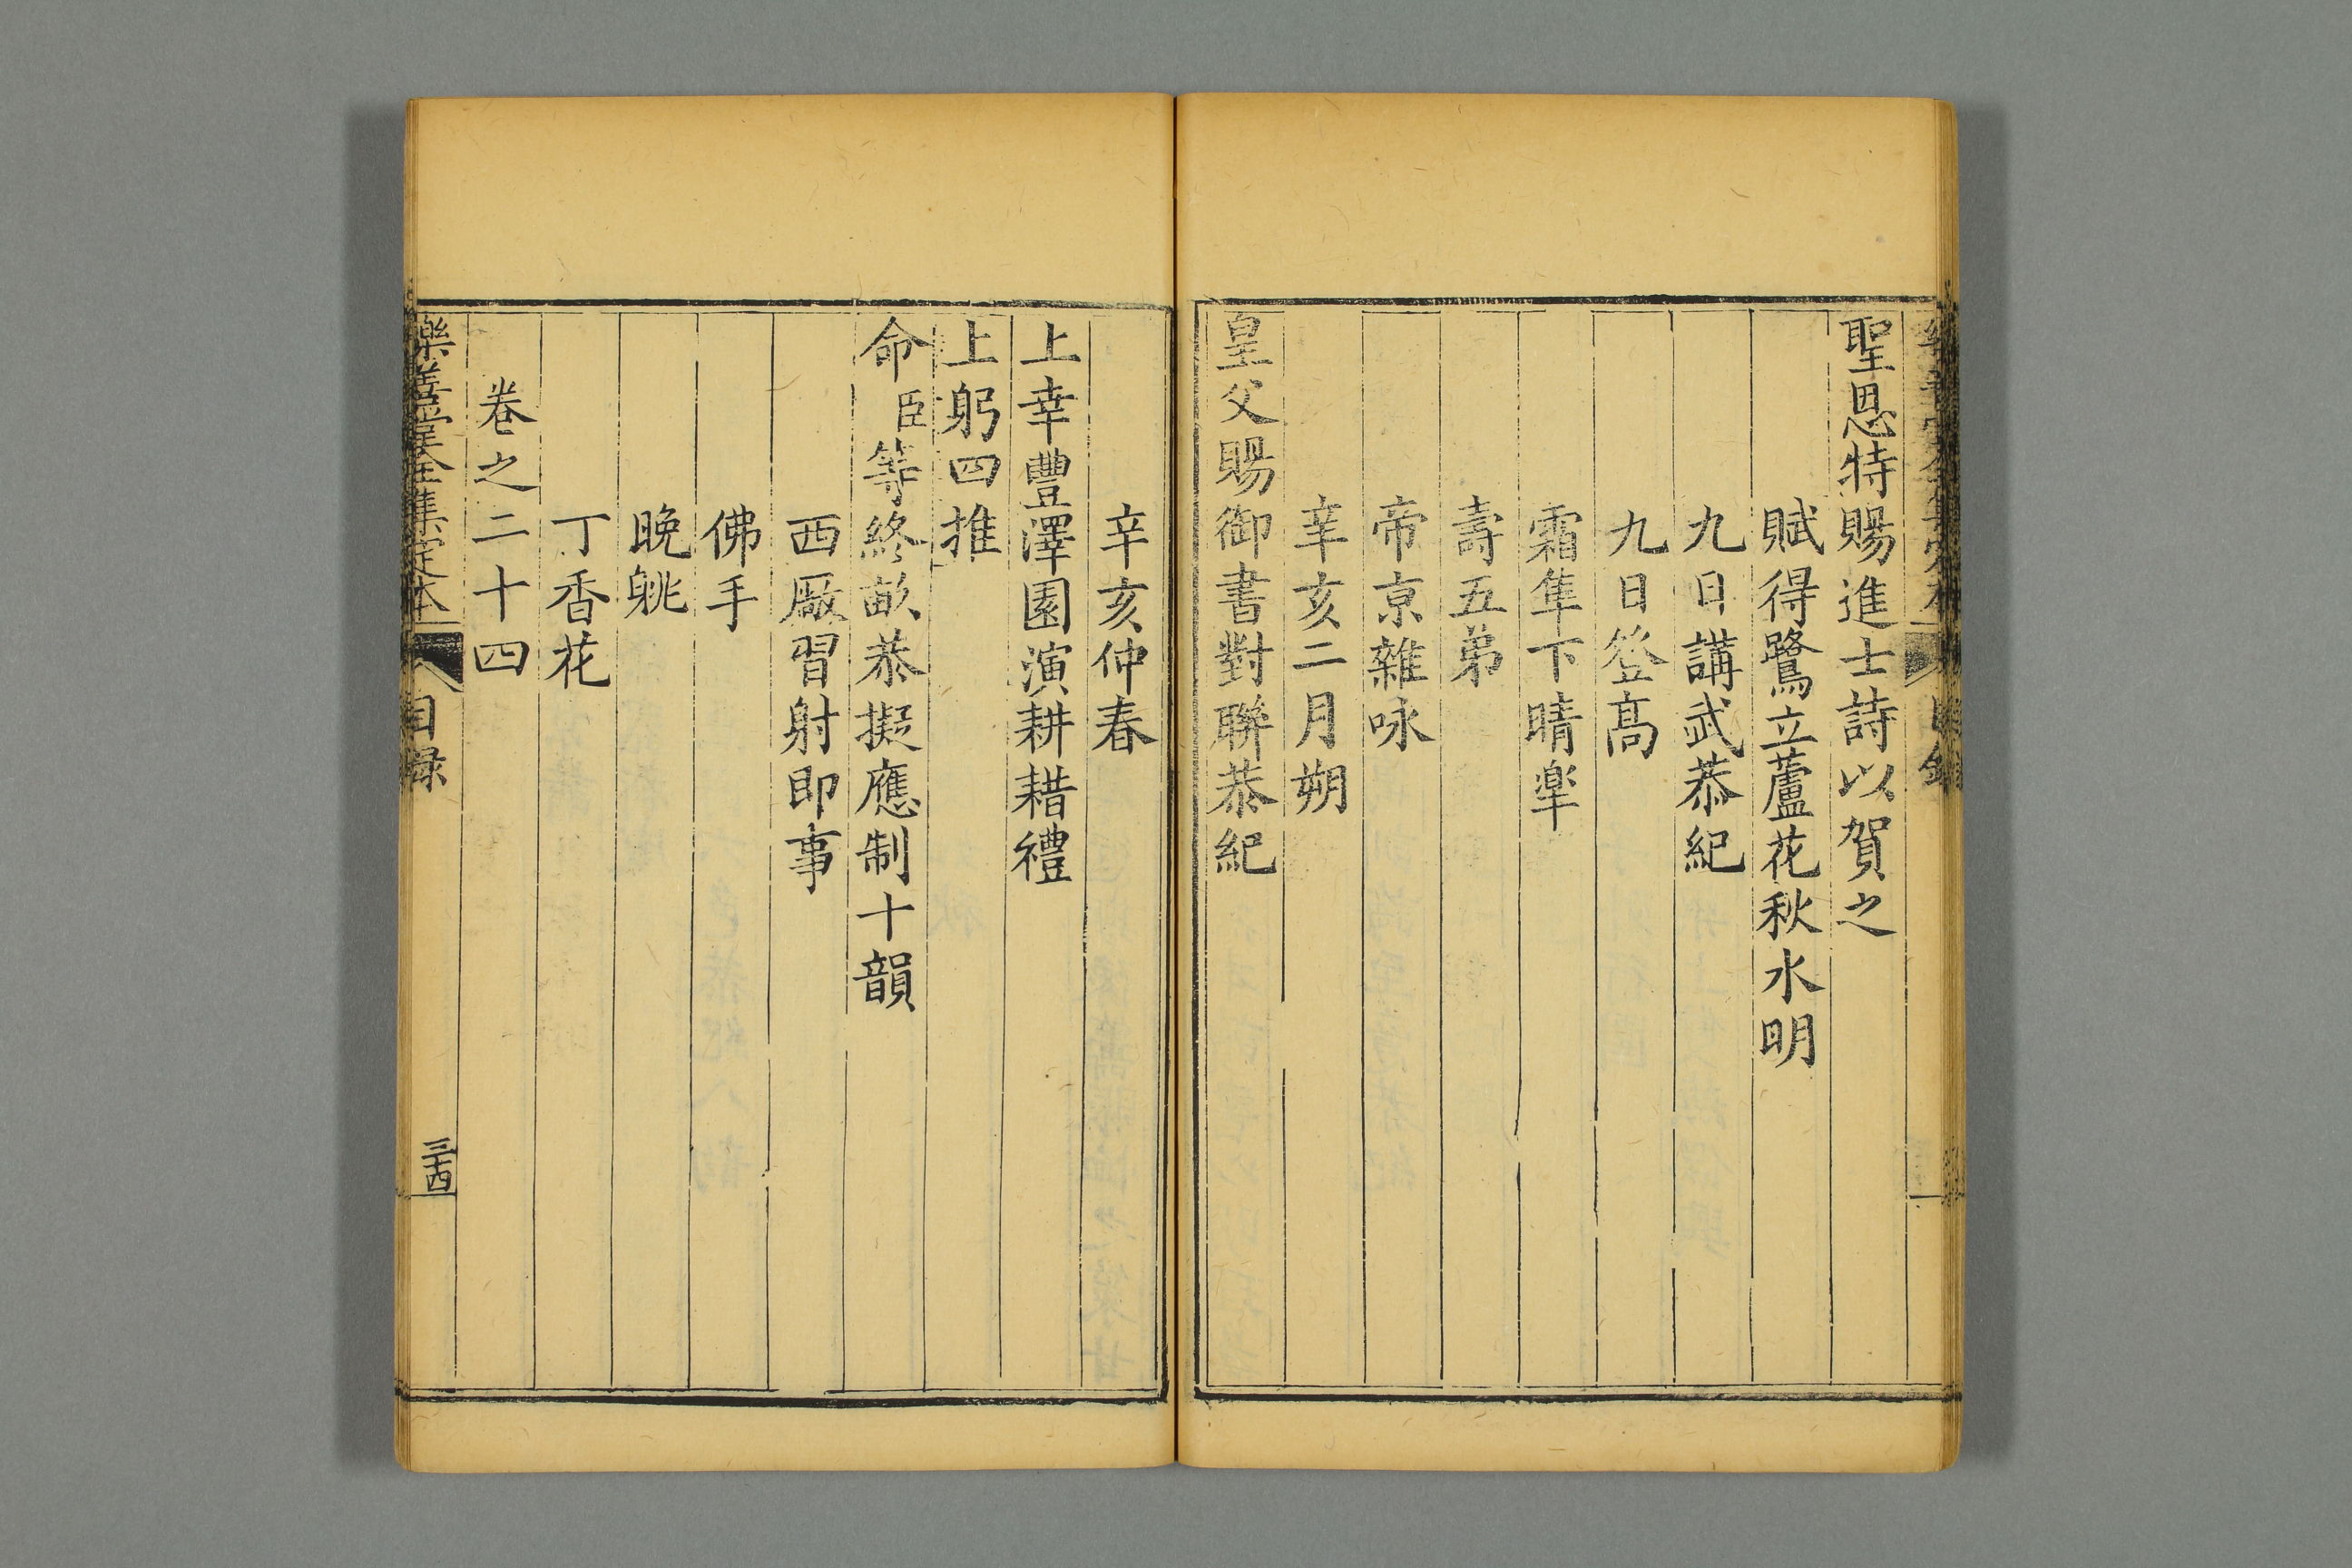 聖恩特賜進士詩以賀之
賦得鷺立蘆花秋水明
九日講武恭紀
九日登高
霜隼下晴臯
壽五弟
帝京雜咏
辛亥二月朔
皇父賜御書對聯恭紀
辛亥仲春
上幸豐澤園演耕耤禮
上躬四推
命臣等終畝恭擬應制十韻
西廠習射即事
佛手
晚眺
丁香花
卷之二十四
樂善堂全集定本 目録 三十四